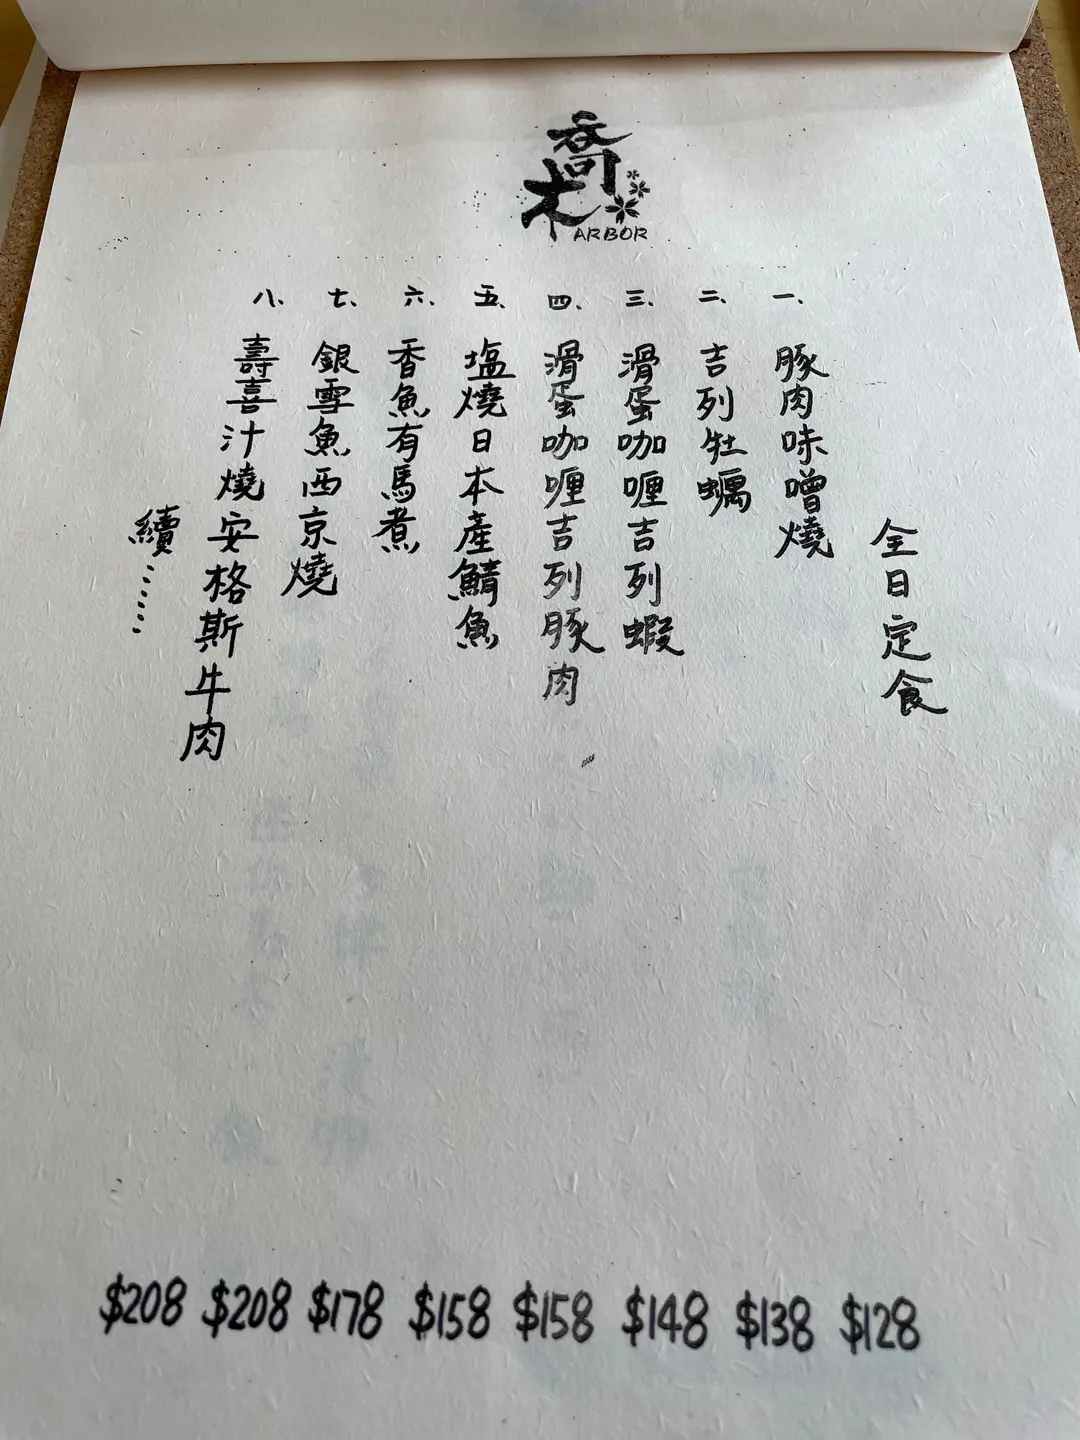 喬木
ARBOR
全日定食
一、豚肉味噌燒
二、吉列牡蠣
三、滑蛋咖喱吉列蝦
四、滑蛋咖喱吉列豚肉
五、塩燒日本產鯖魚
六、香魚有馬煮
七、銀雪魚西京燒
八、壽喜汁燒安格斯牛肉
續……
$128
$138
$148
$158
$158
$178
$208
$208